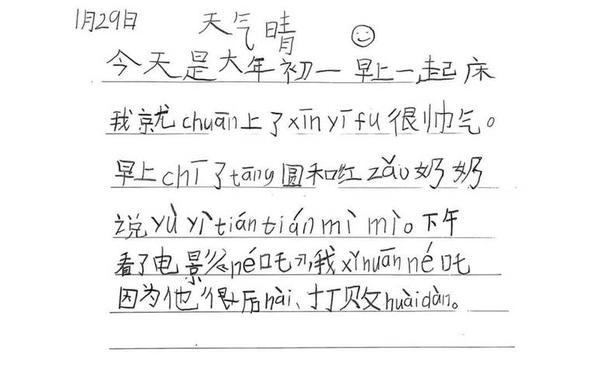 1月29日 天气晴
今天是大年初一早上一起床
我就chuān上了xīnyīfu很帅气。
早上chī了tāng圆和红zǎo奶奶
说yù yì tián tián mì mì。下午
看了电影né吒,我xǐhuān né吒
因为他很厉hài、打败huàidàn。